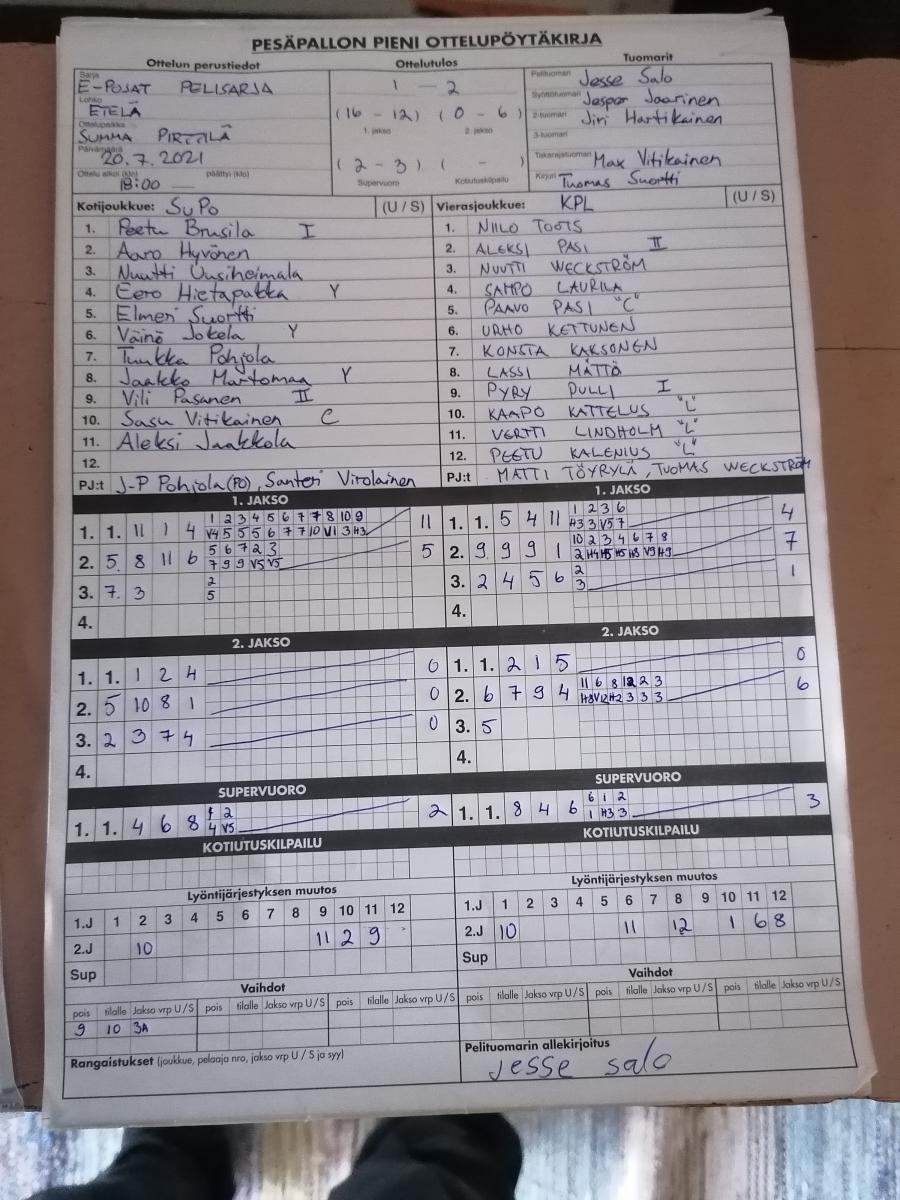 PESÄPALLON PIENI OTTELUPÖYTÄKIRJA
Ottelun perustiedot
Sarja
E-POJAT PELISARJA
Lohko
ETELÄ
Ottelupaikka
SUMMA PIRTTILÄ
Päivämäärä
20.7.2021
Ottelu alkoi (klo) päättyi (klo)
18:00 —
Ottelutulos
1 - 2
(16 - 12) (0 - 6)
1. jakso 2. jakso
(2 - 3) ( - )
Supervuoro Kotiutuskilpailu
Tuomarit
Pelituomari Jesse Salo
Syöttötuomari Jasper Jaarinen
2-tuomari Jiri Hartikainen
3-tuomari
Takarajatuomari Max Vitikainen
Kirjuri Tuomas Suortti
Kotijoukkue: SuPo (U / S)
1. Peetu Brusila I
2. Aaro Hyvönen
3. Nuutti Uusiheimala
4. Eero Hietapakka Y
5. Elmeri Suortti
6. Väinö Jokela Y
7. Tuukka Pohjola
8. Jaakko Martomaa Y
9. Vili Pasanen II
10. Sasu Vitikainen C
11. Aleksi Jaakkola
12.
PJ:t J-P Pohjola (PO), Santeri Virolainen
Vierasjoukkue: KPL (U / S)
1. NIILO TOOTS
2. ALEKSI PASI II
3. NUUTTI WECKSTRÖM
4. SAMPO LAURILA
5. PAAVO PASI "C"
6. URHO KETTUNEN
7. KONSTA KAKSONEN
8. LASSI MÄTTÖ
9. PYRY PULLI I
10. KAAPO KATTELUS "L"
11. VERTTI LINDHOLM "L"
12. PEETU KALENIUS "L"
PJ:t MATTI TÖYRYLÄ, TUOMAS WECKSTRÖM
1. JAKSO
1 2 3 4 5 6 7 7 8 10 9
1. 1. 11 1 4 V4 5 5 5 6 7 7 10 V1 3 H3 11
5 6 7 2 3
2. 5 8 11 6 7 9 9 V5 V5 5
2
3. 7 3 5
4.
1. JAKSO
1 2 3 6
1. 1. 5 4 11 H3 3 V5 7 4
10 2 3 4 6 7 8
2. 9 9 9 1 2 H4 H5 H5 H8 V9 H9 7
2
3. 2 4 5 6 3 1
4.
2. JAKSO
1. 1. 1 2 4 0
2. 5 10 8 1 0
3. 2 3 7 4 0
4.
2. JAKSO
1. 1. 2 1 5 0
11 6 8 12 2 3
2. 6 7 9 4 H8 V12 H2 3 3 3 6
3. 5
4.
SUPERVUORO
1 2
1. 1. 4 6 8 4 V5 2
SUPERVUORO
6 1 2
1. 1. 8 4 6 1 H3 3 3
KOTIUTUSKILPAILU
KOTIUTUSKILPAILU
Lyöntijärjestyksen muutos
1.J 1 2 3 4 5 6 7 8 9 10 11 12
2.J 10 11 2 9
Sup
Lyöntijärjestyksen muutos
1.J 1 2 3 4 5 6 7 8 9 10 11 12
2.J 10 11 12 1 6 8
Sup
Vaihdot
pois tilalle Jakso vrp U / S pois tilalle Jakso vrp U / S pois tilalle Jakso vrp U / S
9 10 3A
Vaihdot
pois tilalle Jakso vrp U / S pois tilalle Jakso vrp U / S pois tilalle Jakso vrp U / S
Rangaistukset (joukkue, pelaaja nro, jakso vrp U / S ja syy)
Pelituomarin allekirjoitus
Jesse Salo